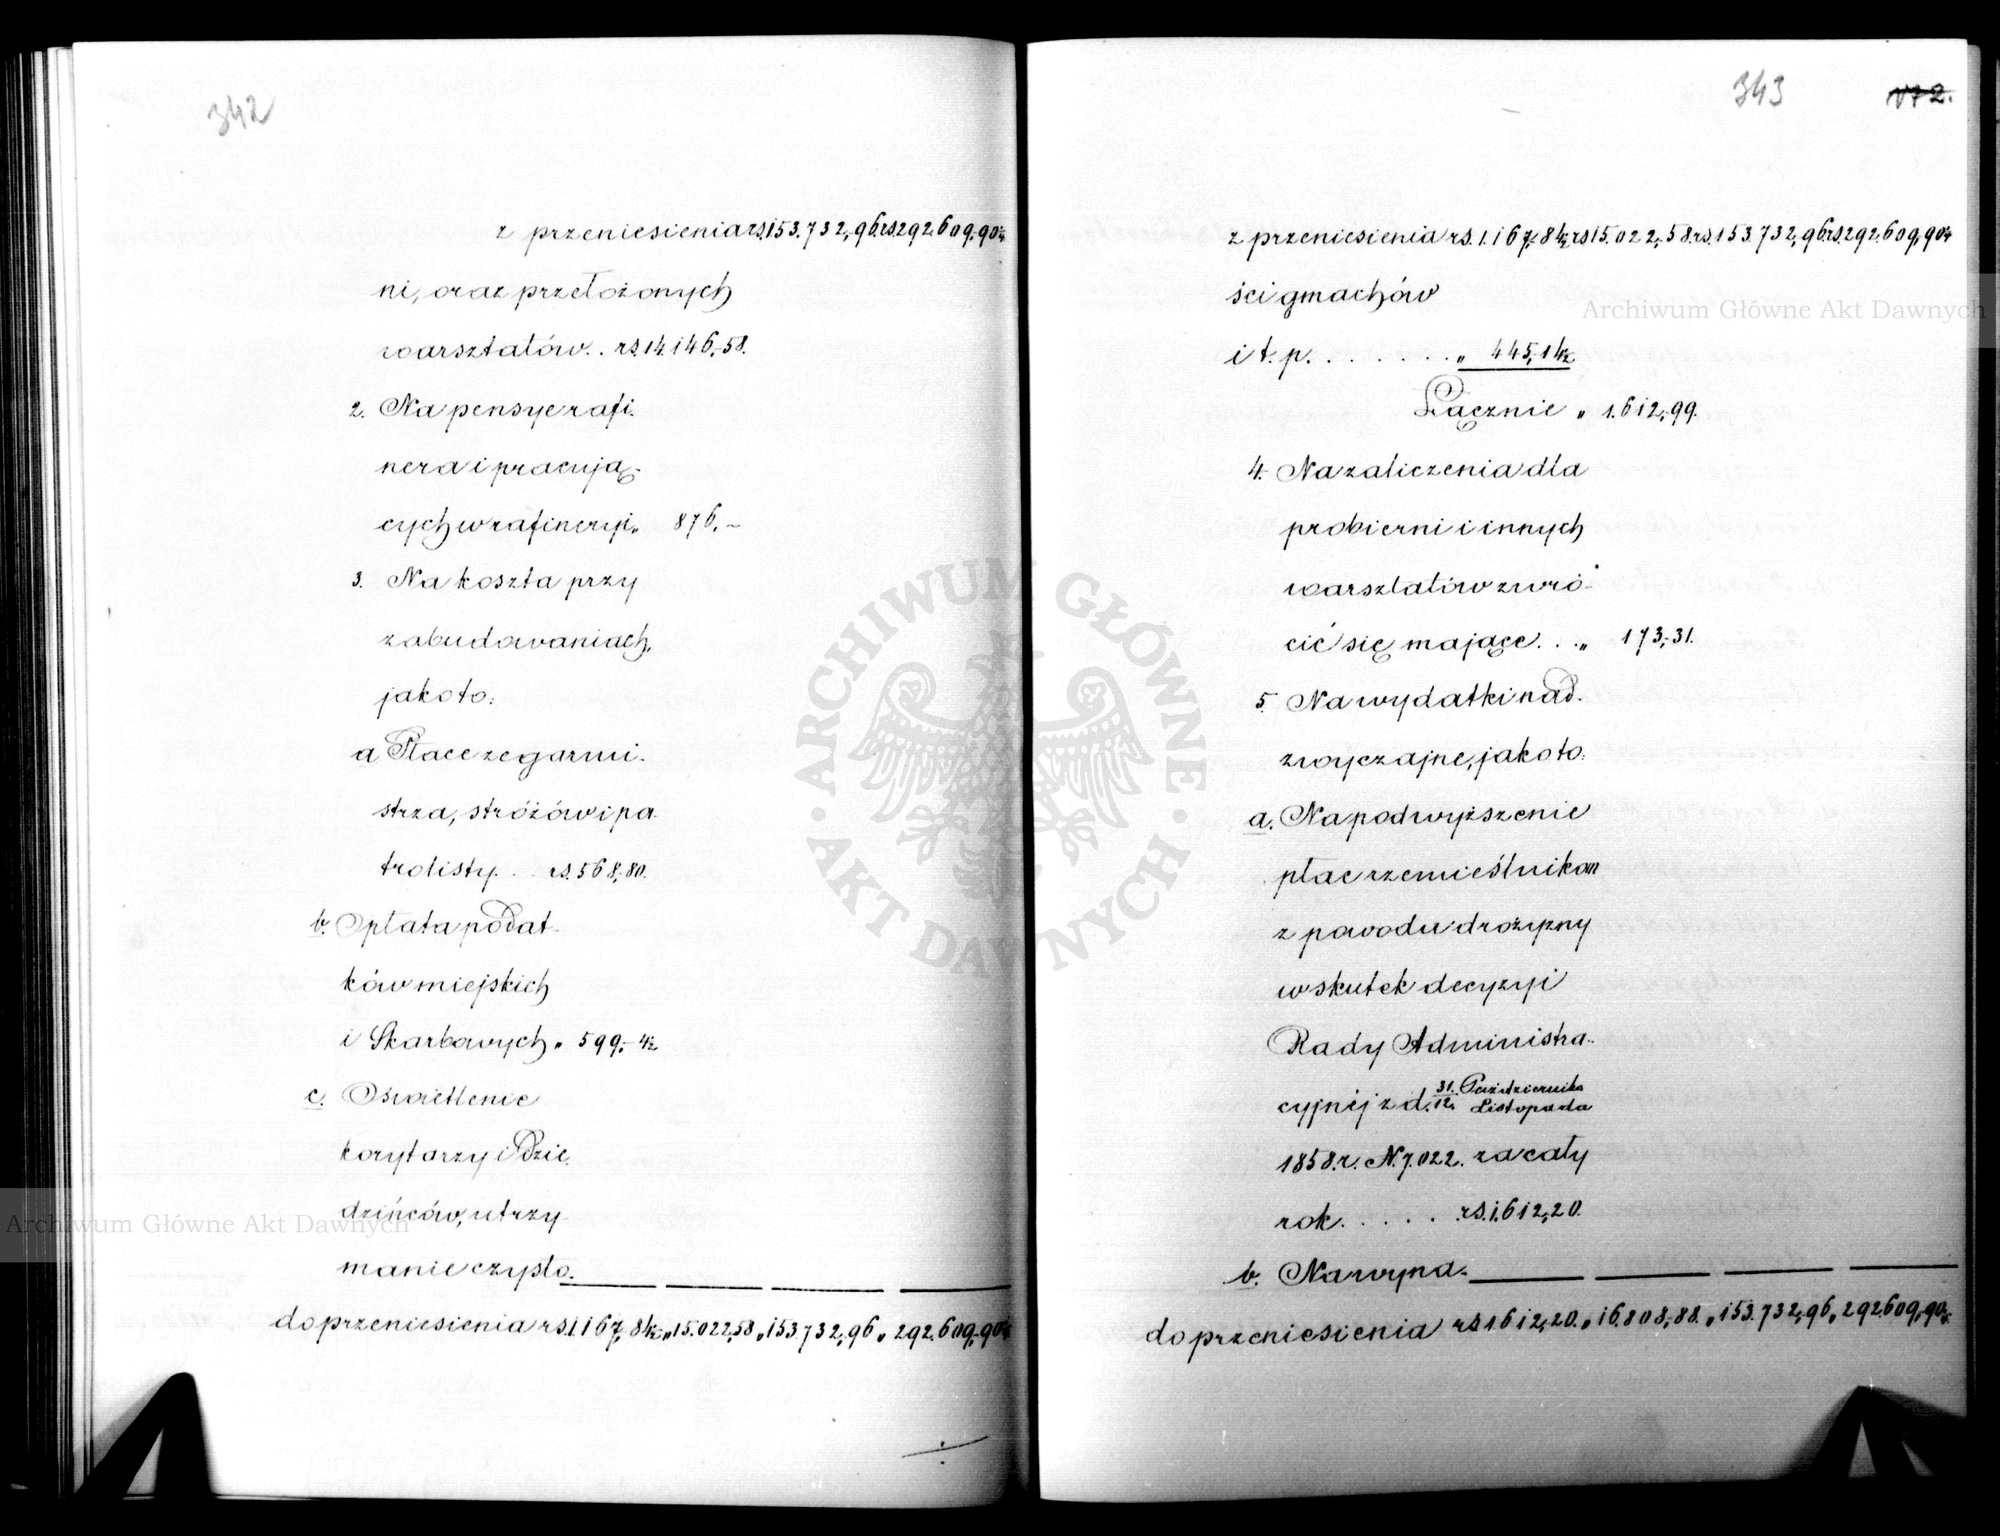 342
z przeniesienia rs. 153.732,96. rs. 292.609,90½
ni, oraz przełożonych
warsztatów . . rs. 14.146,58.
2. Na pensye rafi-
nera i pracują-
cych w rafineryi „ 876,–
3. Na koszta przy
zabudowaniach,
jakoto:
a Płace zegarmi-
strza, stróżów i pa-
trolisty . . rs. 568,80.
b. Opłata podat-
ków miejskich
i Skarbowych „ 599,–4½
c. Oświetlenie
korytarzy i Dzie-
dzińców, utrzy-
manie czysto-
do przeniesienia rs. 1167,84½ „ 15.022,58 „ 153.732,96 „ 292.609,90½
343
172.
z przeniesienia rs. 1.167,84½ rs 15.022,58. rs. 153.732,96. rs. 292.609,90½
ści gmachów
i t. p. . . . . . . . „ 445,14½
Łącznie „ 1.612,99.
4. Na zaliczenia dla
probierni i innych
warsztatów zwró-
cić się mające . . . „ 173,31.
5. Na wydatki nad-
zwyczajne, jakoto:
a. Na podwyższenie
płac rzemieślnikom
z powodu drożyzny
w skutek decyzyi
Rady Administra-
cyjnéj z d. 31. Października
12. Listopada
1858.r. N. 7.022. za cały
rok . . . . . rs. 1.612,20.
b. Na wyna-
do przeniesienia rs. 1.612,20. „ 16.808,88. „ 153.732,96 „ 292.609,90½
Archiwum Główne Akt Dawnych
Archiwum Główne Akt Dawnych
ARCHIWUM GŁÓWNE · AKT DAWNYCH ·